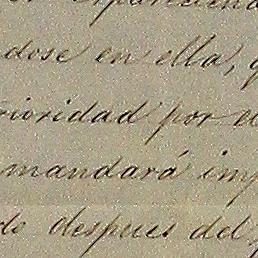 dose en ella,
rioridad por
mandará imp
do despues del